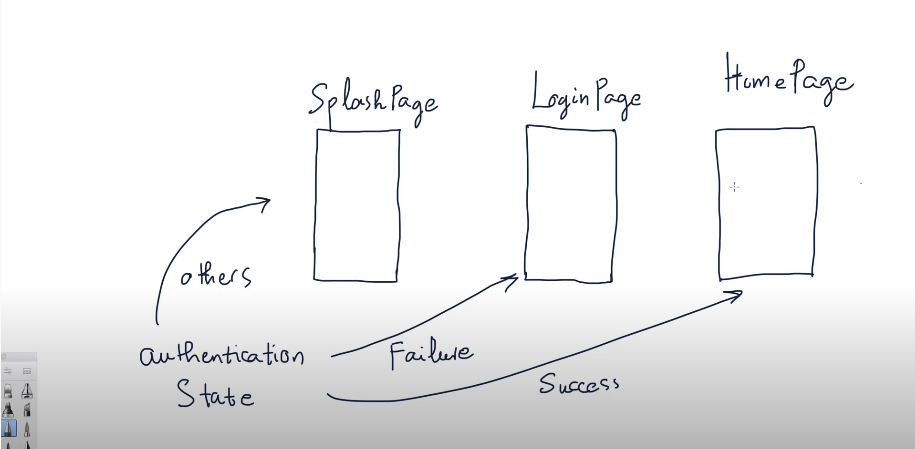 SplashPage
LoginPage
HomePage
others
authentication
State
Failure
Success